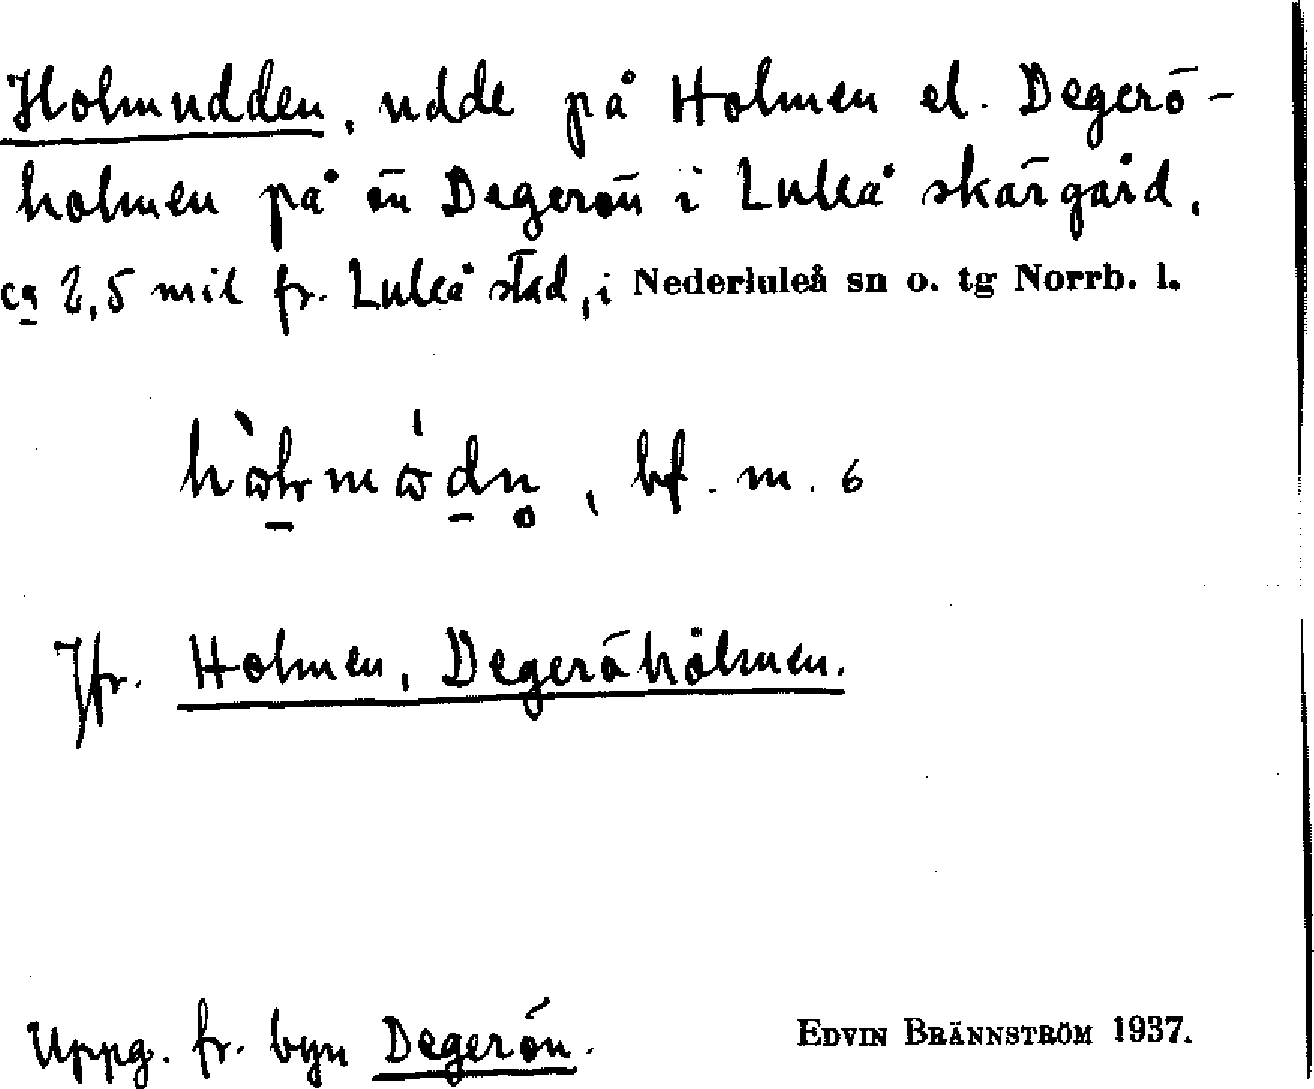 Holmudden, udde på Holmen el. Degerö-
holmen på ön Degerön i Luleå skärgård,
ca 2,5 mil fr. Luleå stad, i Nederluleå sn o. tg Norrb. l.
, bf. m. 6
Jfr. Holmen, Degeröholmen.
Uppg. fr. byn Degerön.
EDVIN BRÄNNSTRÖM 1937.